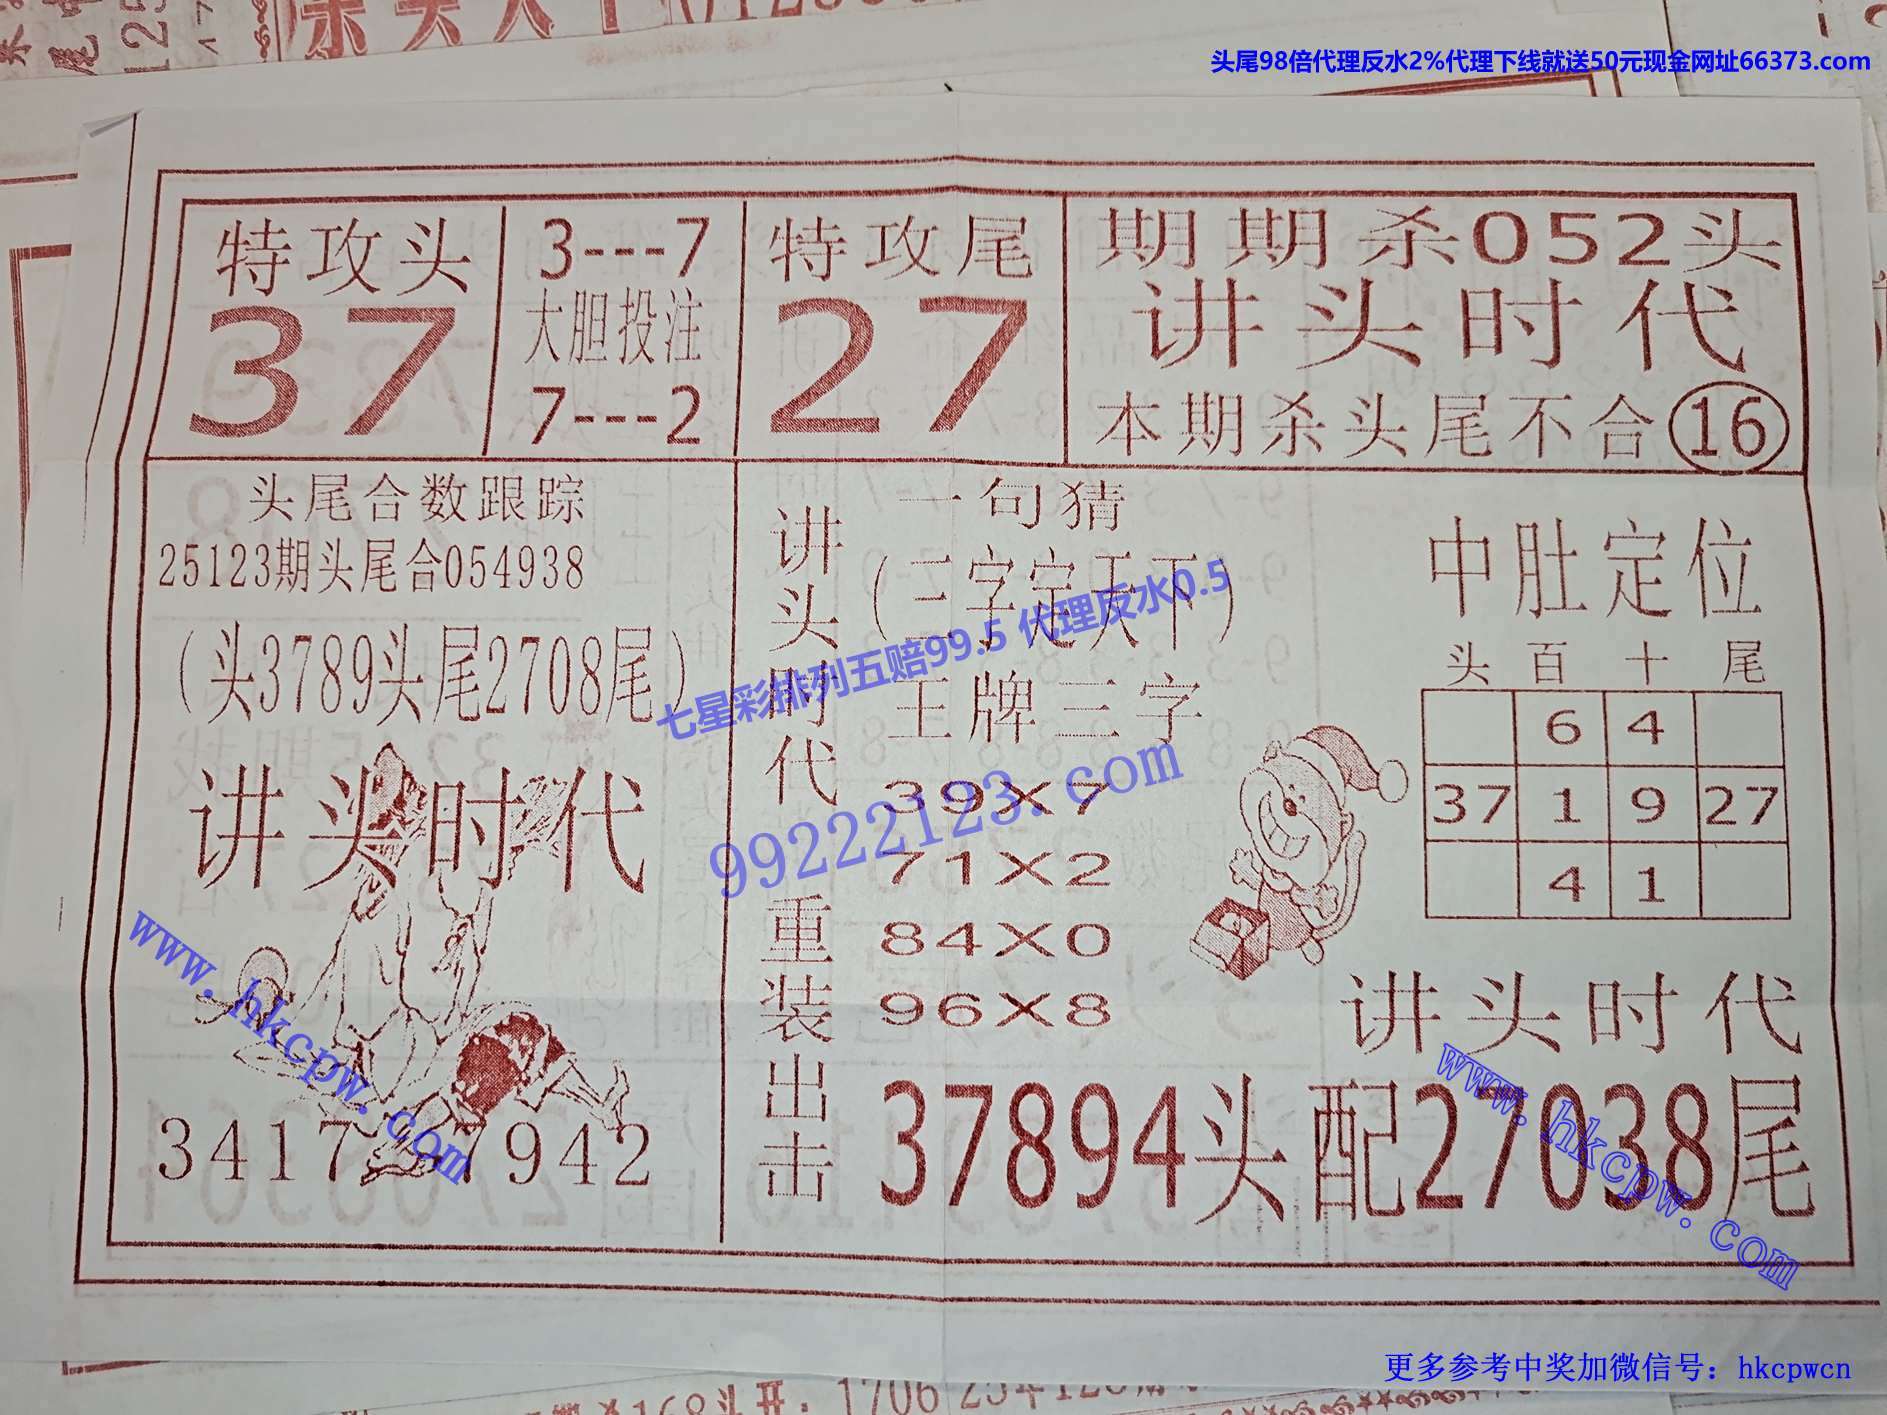 头尾98倍代理反水2%代理下线就送50元现金网址66373.com
特攻头
37
3---7
大胆投注
7---2
特攻尾
27
期期杀052头
讲头时代
本期杀头尾不合16
头尾合数跟踪
25123期头尾合054938
(头3789头尾2708尾)
讲头时代
3417
7942
讲头时代重装出击
一句猜
(三字定天下)
王牌三字
39X7
71X2
84X0
96X8
中肚定位
头 百 十 尾
6 4
37 1 9 27
4 1
讲头时代
37894头配27038尾
七星彩排列五赔99.5 代理反水0.5
99222123.com
www.hkcpw.com
www.hkcpw.com
更多参考中奖加微信号：hkcpwcn